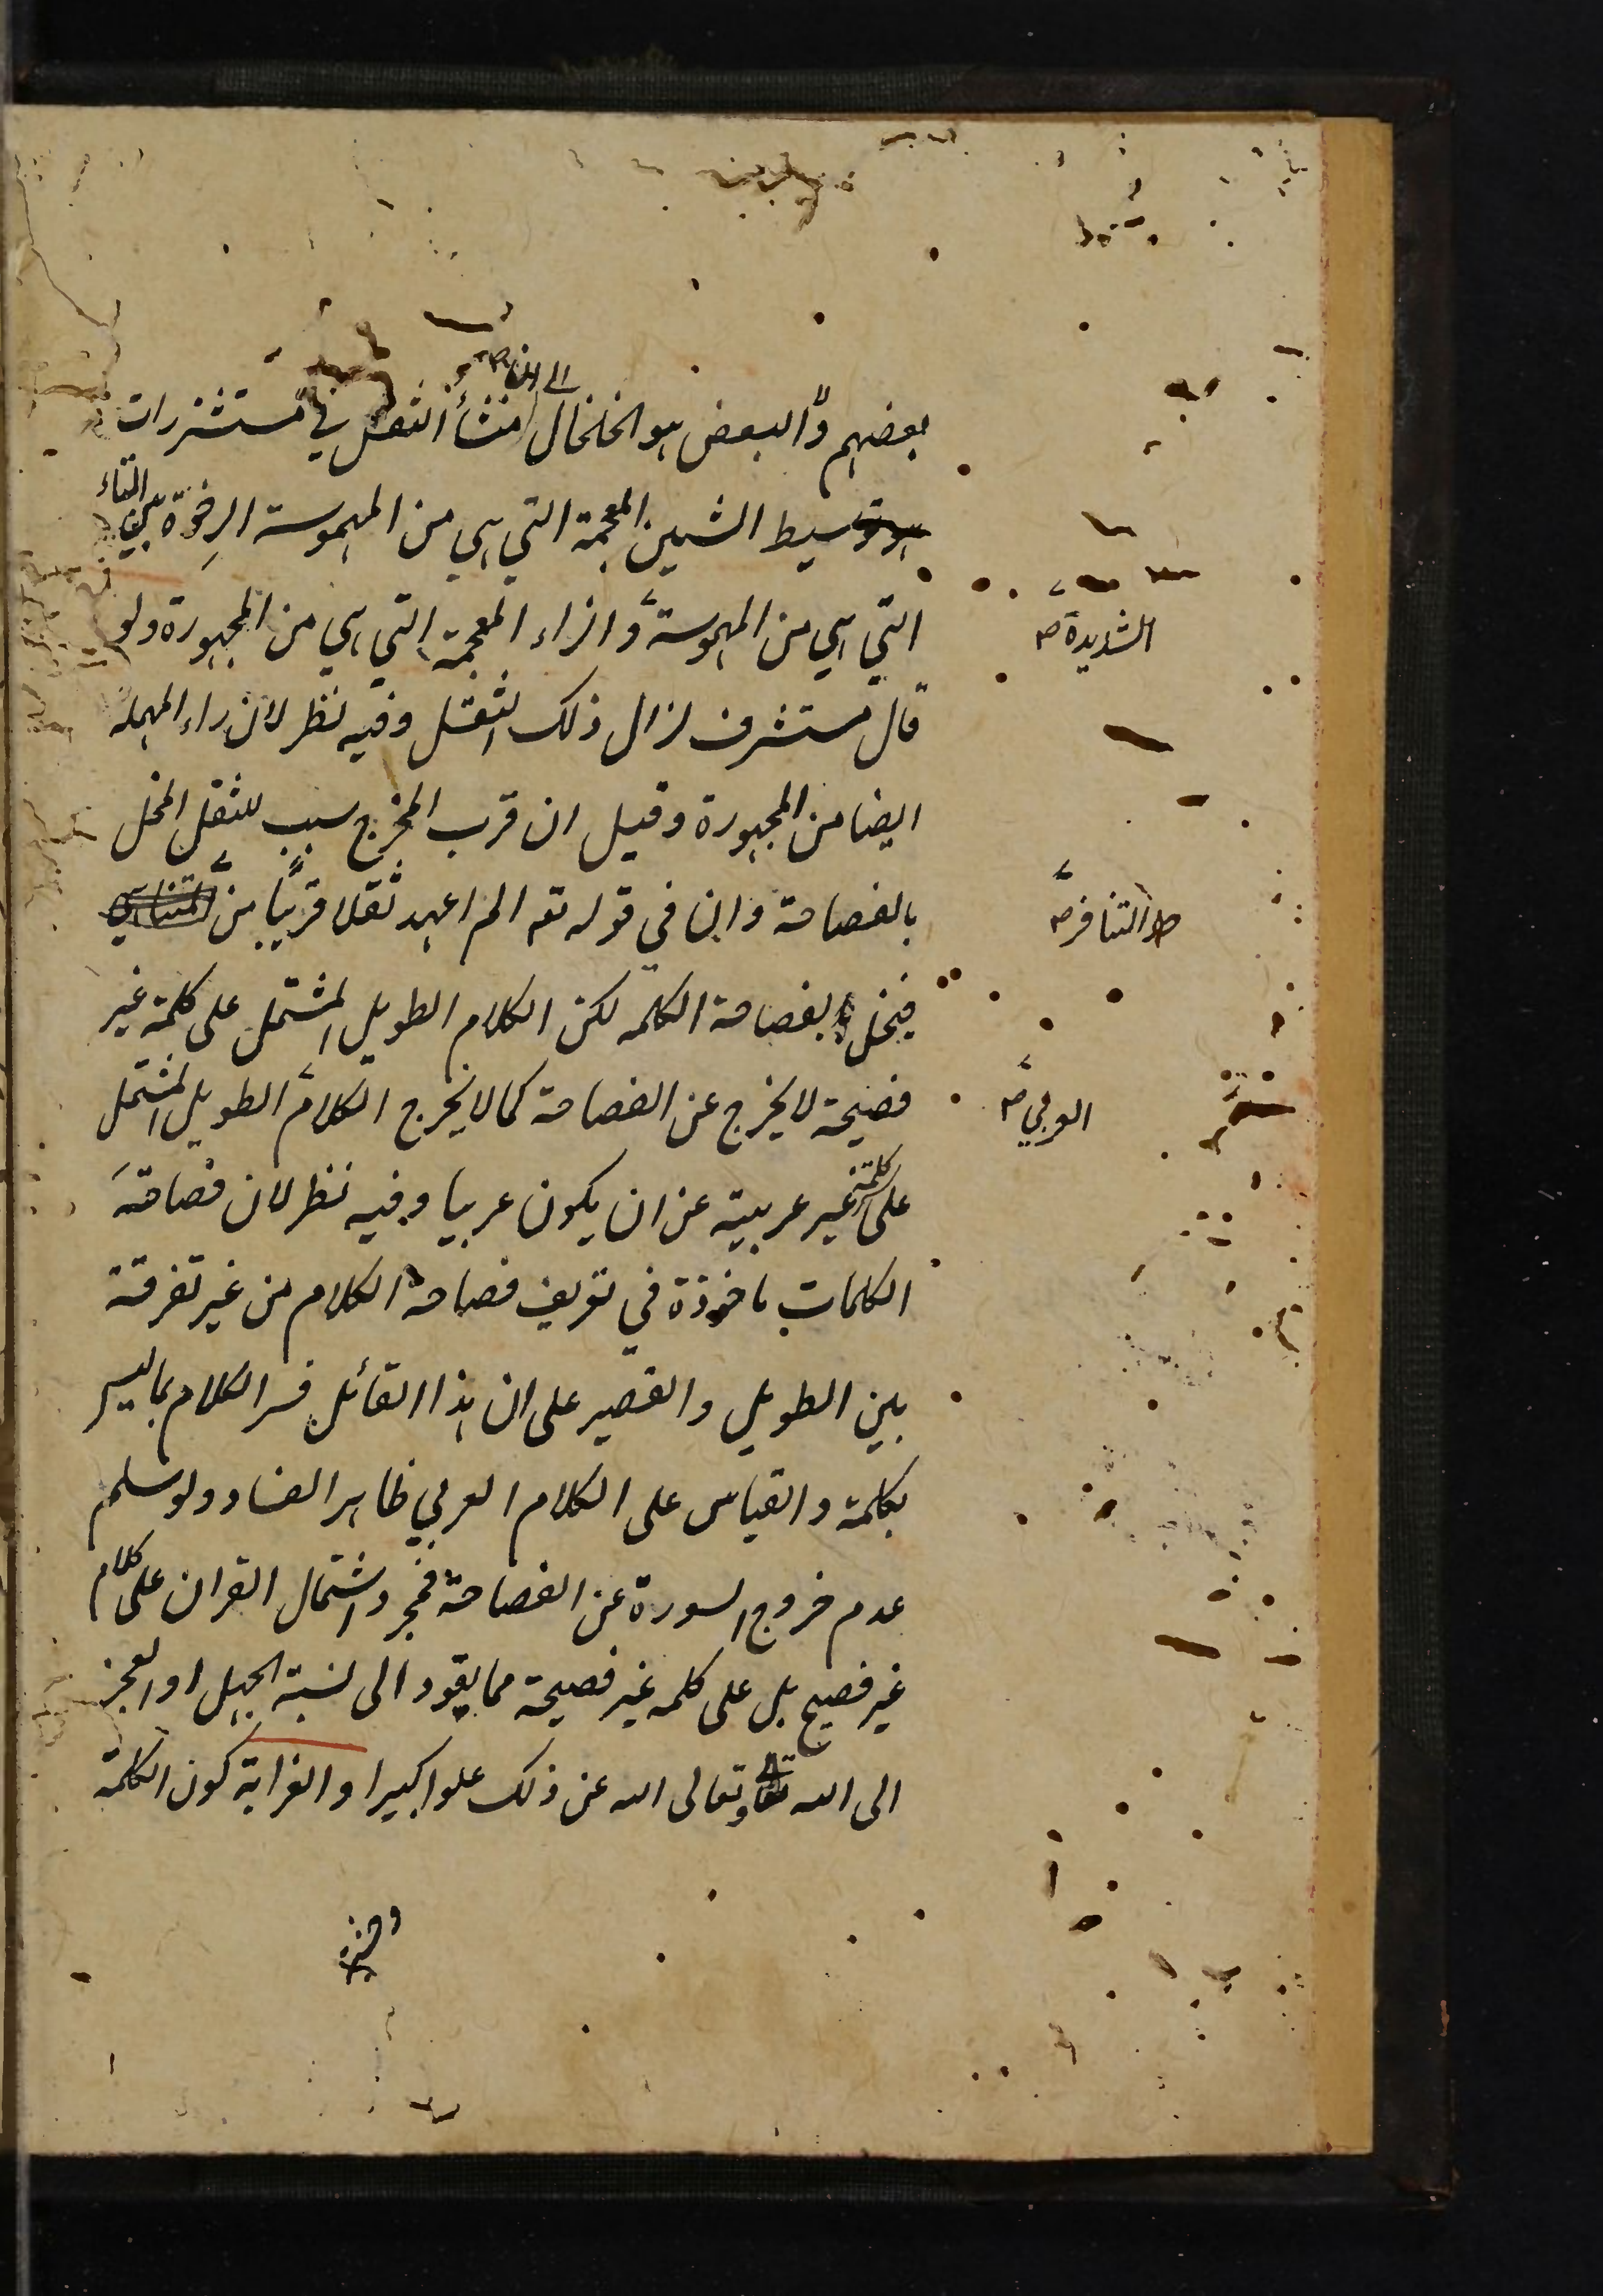 الى ان
بعضهم والبعض هو الخلخال منشأ الثقل في مستشزرات
هو توسيط الشين المعجمة التي هي من المهموسة الرخوة بين التاء
التي هي من المهموسة والزاء المعجمة التي هي من المجهورة ولو
الشديدة صح
قال مستشرف لزال ذلك الثقل وفيه نظر لان الراء المهملة
ايضا من المجهورة وقيل ان قرب المخرج سبب للثقل المخل
بالفصاحة وان في قوله تع الم اعهد ثقلا قريبا من المتناهي
التنافر صح
فيخل بفصاحة الكلمه لكن الكلام الطويل المشتمل على كلمة غير
فصيحة لا يخرج عن الفصاحة كما لا يخرج الكلام الطويل المشتمل
العربي صح
على كلمة غير عربية عن ان يكون عربيا وفيه نظر لان فصاحة
الكلمات ماخوذة في تعريف فصاحة الكلام من غير تفرقة
بين الطويل والقصير على ان هذا القائل فسر الكلام بما ليس
بكلمة والقياس على الكلام العربي ظاهر الفساد ولو سلم
عدم خروج السورة عن الفصاحة فمجرد اشتمال القران على كلام
غير فصيح بل على كلمه غير فصيحة مما يقود الى نسبة الجهل او العجز
الى الله تعالى وتعالى الله عن ذلك علوا كبيرا والغرابة كون الكلمة